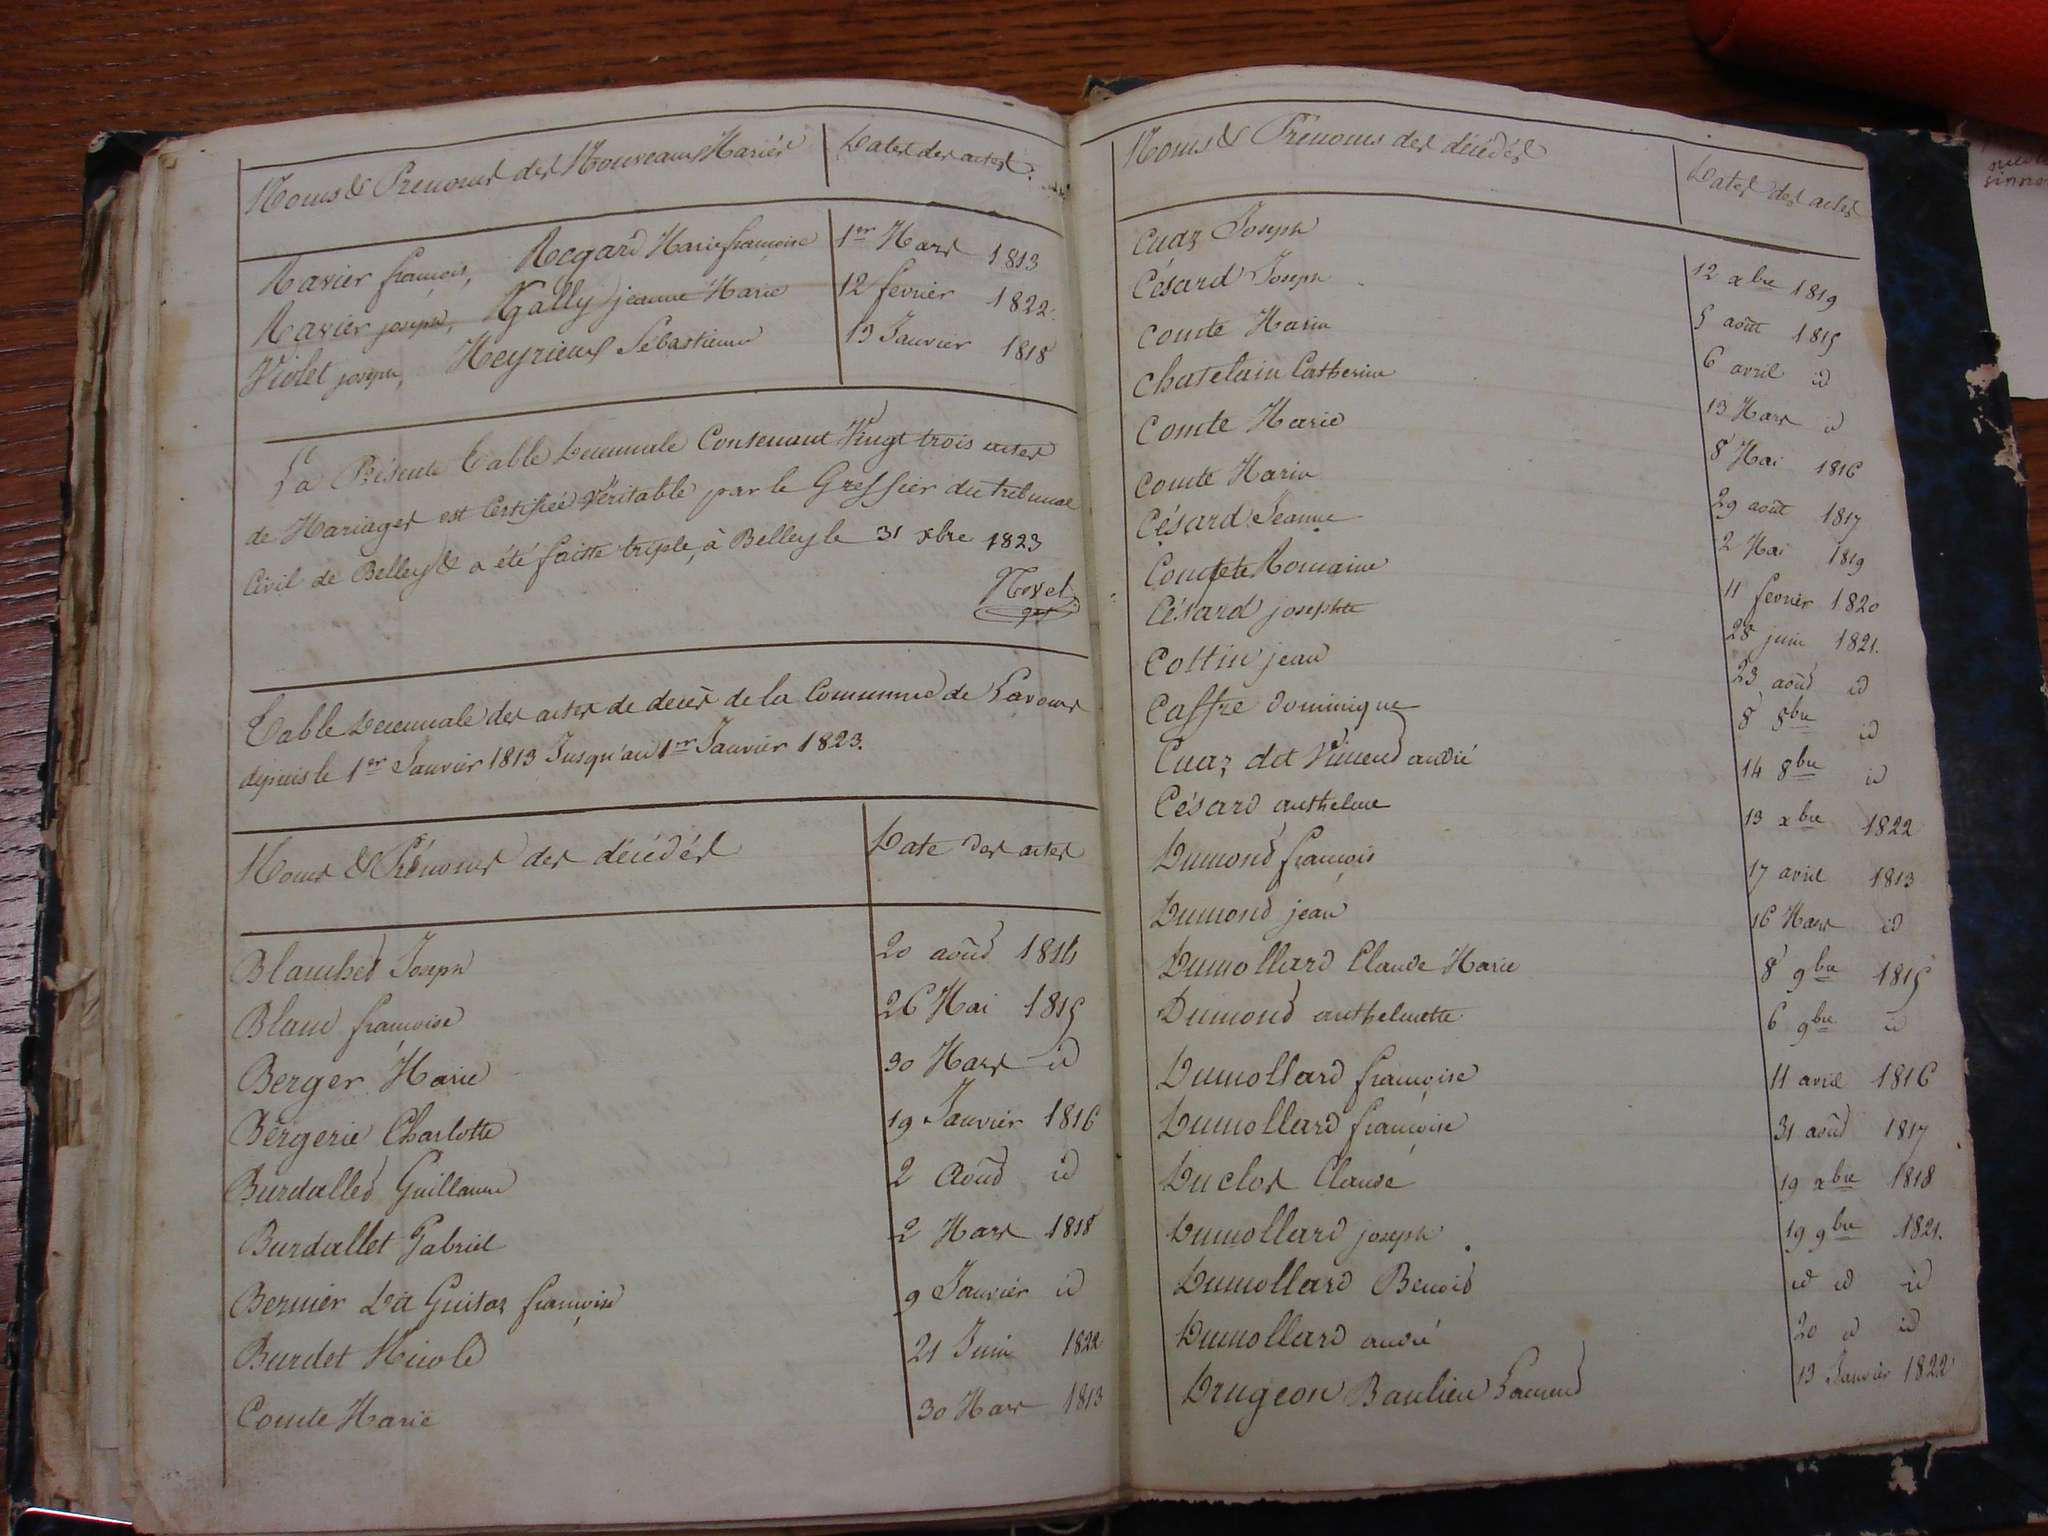 Noms & Prénoms des Nouveaux Mariés Dates des actes.
Ravier françois, Recgard Marie françoise 1er Mars 1813
Ravier joseph, Gally jeanne Marie 12 fevrier 1822.
Violet joseph, Meyrieux Sébastienne 13 Janvier 1818
La Présente Table Decennale Contenant Vingt trois actes
de Mariages est Certifiée Véritable par le Greffier du tribunal
Civil de Belley & a été faitte triple, à Belley le 31 xbre 1823
Table Decennale des actes de decès de la Commune de Lavours
depuis le 1er Janvier 1813 Jusqu'au 1er Janvier 1823.
Noms & Prénoms des décédés Date des actes
Blanchet Joseph 20 aoûst 1814
Blanc françoise 26 Mai 1815
Berger Marie 30 Mars id
Bergerie Charlotte 19 Janvier 1816
Burdallet Guillaume 2 Aoûst id
Burdallet Gabriel 2 Mars 1818
Bernier Dit Guitaz françoise 9 Janvier id
Burdet Nicole 21 Juin 1822
Comte Marie 30 Mars 1813
Noms & Prénoms des décédés Dates des actes
Cuaz Joseph 12 xbre 1819
Césard Joseph 5 août 1815
Comte Marie 6 avril id
Chatelain Catherine 13 Mars id
Comte Marie 8 Mai 1816
Comte Marie 29 août 1817
Césard Jeanne 2 Mai 1819
Comte Romaine 11 fevrier 1820
Césard josephte 28 juin 1821.
Cottin jean 23 aoûst id
Caffre dominique 8 8bre id
Cuaz dit andré 14 8bre id
Césard anthelme 13 xbre 1822
Dumond françois 17 avril 1813
Dumond jean 16 Mars id
Dumollard Claude Marie 8 9bre 1815
Dumond anthelmette 6 9bre id
Dumollard françoise 11 avril 1816
Dumollard françoise 31 aoûst 1817
Duclos Claude 19 xbre 1818
Dumollard joseph 19 9bre 1821.
Dumollard Benoid id id id
Dumollard andré 20 id id
Drugeon Baulieu 13 Janvier 1822